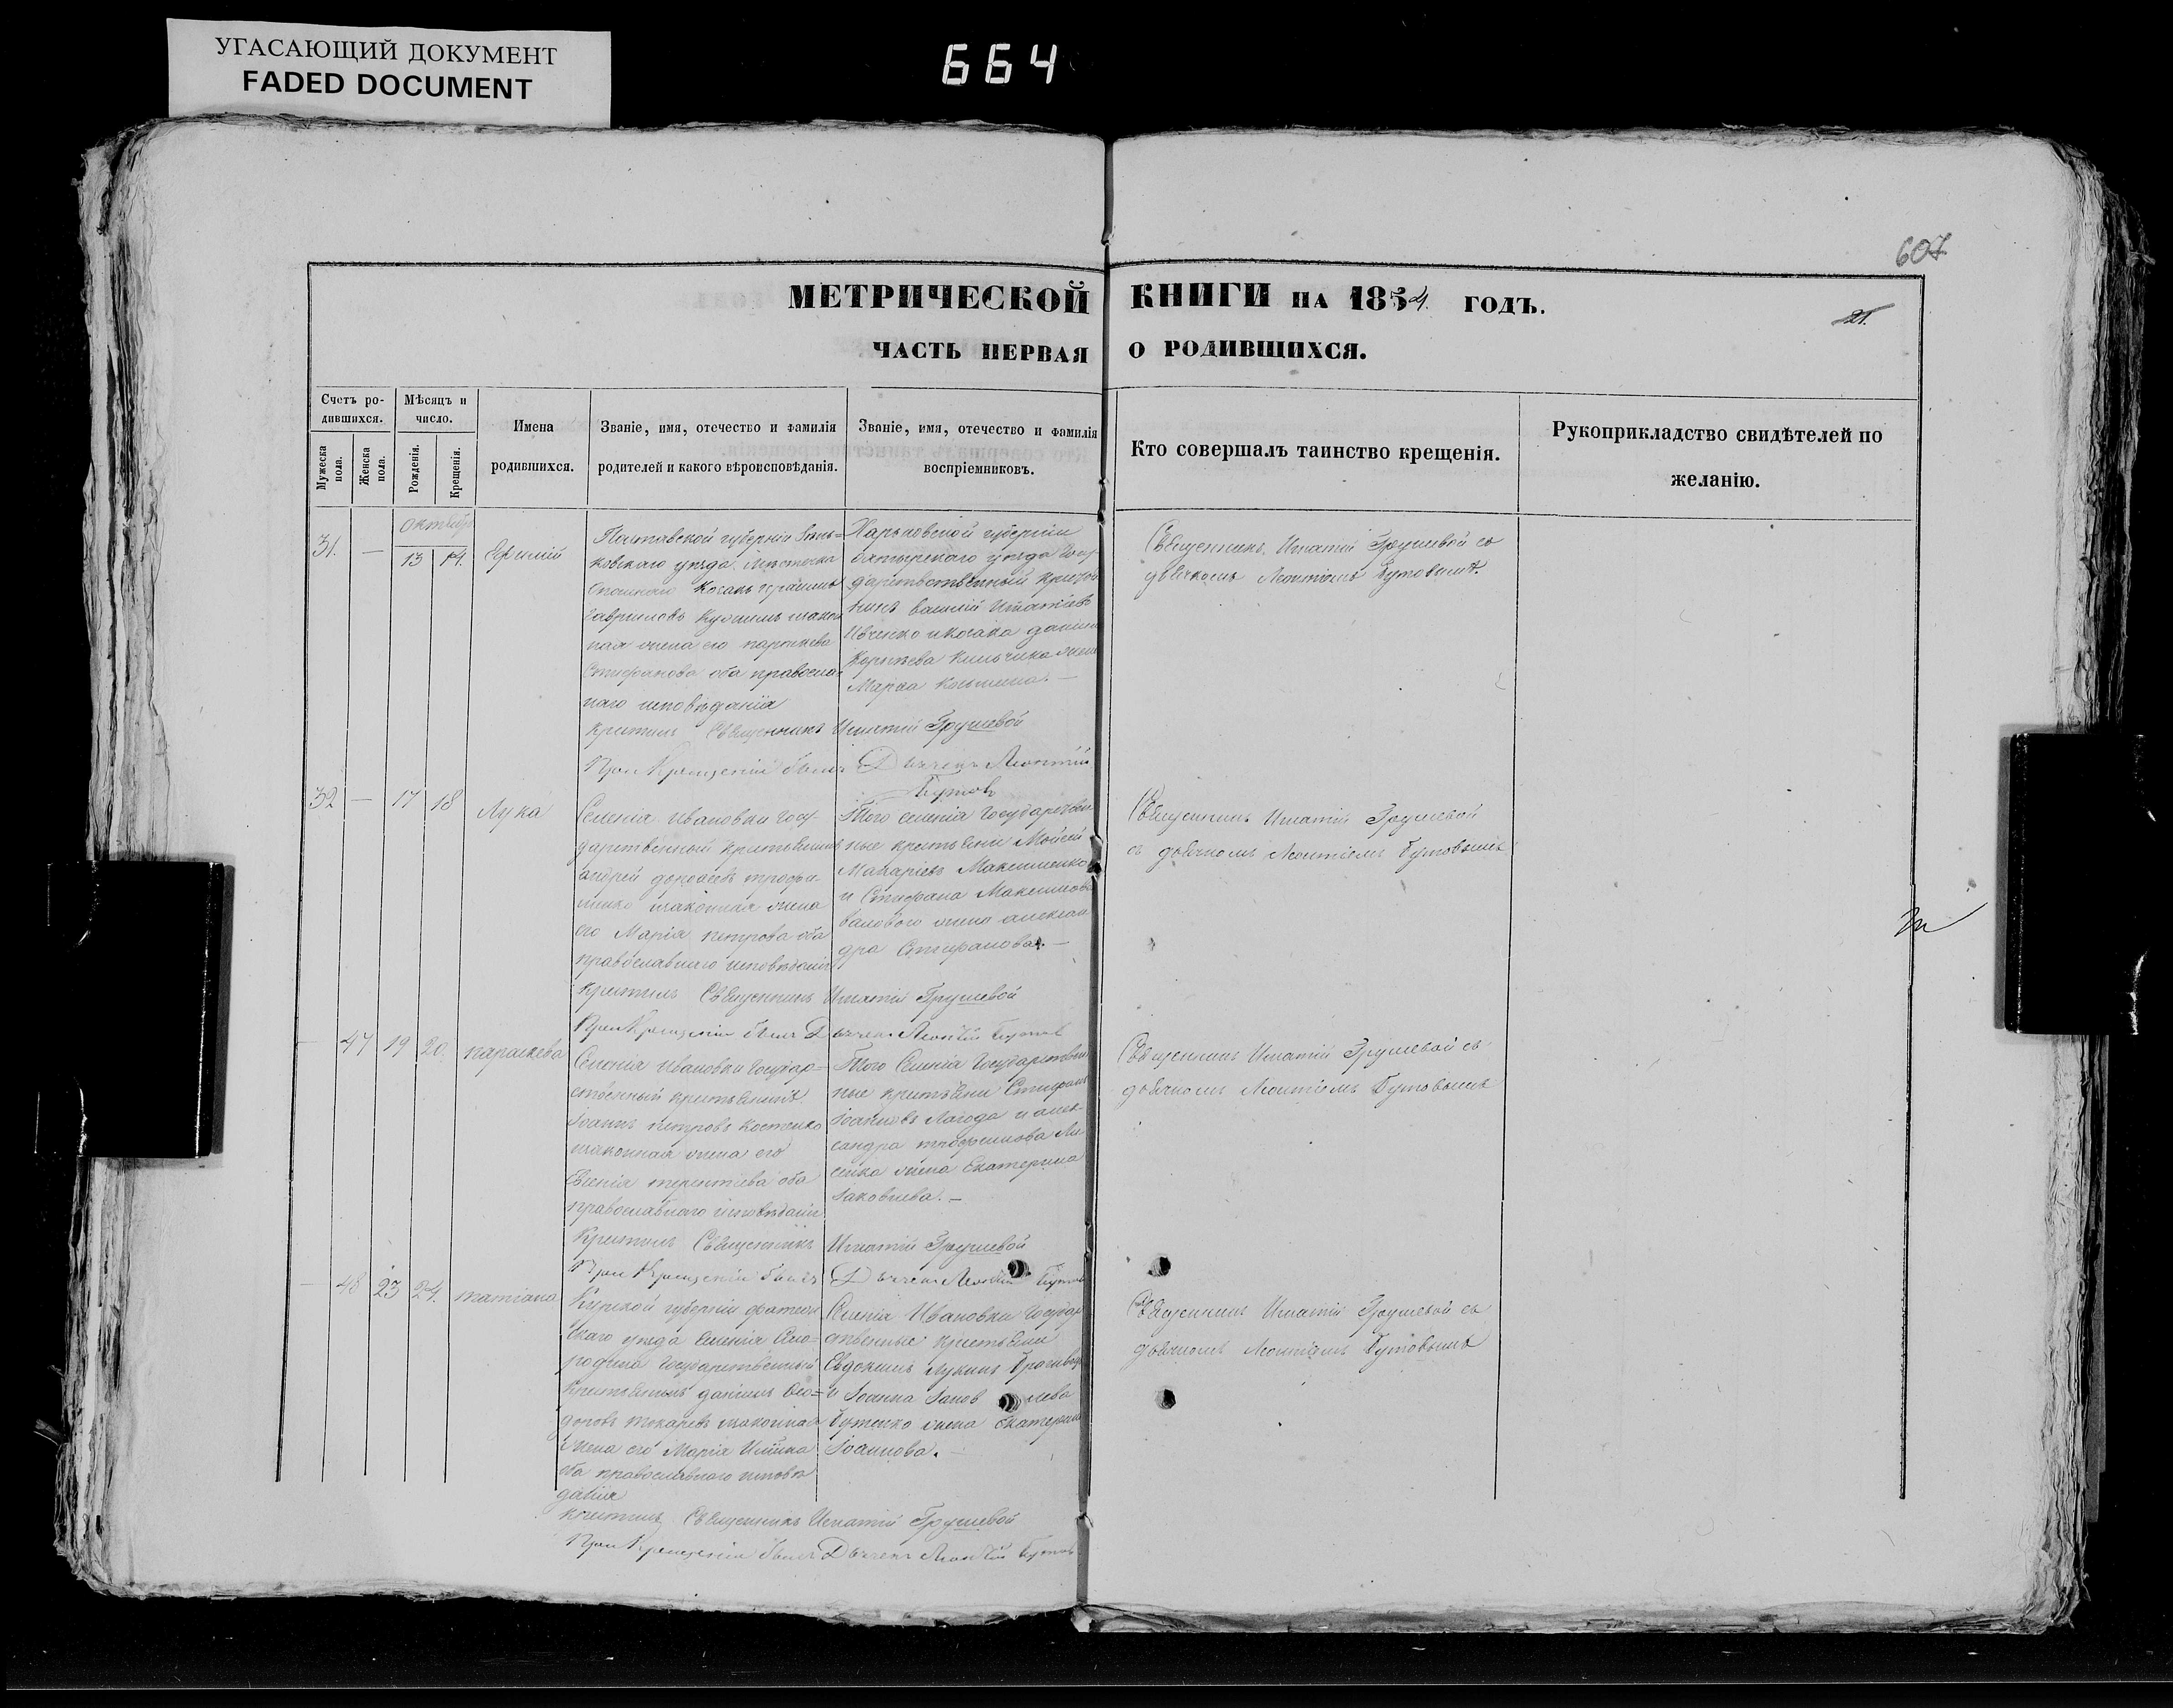 УГАСАЮЩИЙ ДОКУМЕНТ
FADED DOCUMENT
664
607
МЕТРИЧЕСКОЙ КНИГИ НА 1854 ГОДЪ.
21.
ЧАСТЬ ПЕРВАЯ О РОДИВШИХСЯ.
Счетъ ро-
дившихся.
Мужеска пола.
Женска пола.
Мѣсяцъ и
число.
Рожденія.
Крещенія.
Имена
родившихся.
Званіе, имя, отечество и фамилія
родителей и какого вѣроисповѣданія.
Званіе, имя, отечество и фамилія
воспріемниковъ.
Кто совершалъ таинство крещенія.
Рукоприкладство свидѣтелей по
желанію.
Октябр
31. — 13 14. Ефимій
Полтавской губерніи Зень=
ковскаго уезда местечка
козакъ
Гавриловъ
ная жена его параскева
Стефанова оба правосла
наго исповѣданія
Харьковской губерніи
ахтырскаго уезда Госу
дарственный
василій Игнатіевъ
Ивченко и козака
жена
Марѳа
Священникъ Игнатій Грушевой съ
дьячкомъ Леонтіемъ Бутовымъ.
крестилъ Священникъ Игнатій Грушевой
При Крещеніи былъ Дьячекъ Леонтій
Бутовъ
32 — 17 18 Лука
Селенія Ивановки Госу-
дарственный крестьянинъ
андрей трофи-
менко законная жена
его Марія петрова оба
православнаго исповеданія
Того селенія Государствен
ные крестьяне Мойсей
Макаріевъ Максименко
и Стефана Максимова
жена алексан
дра Стефанова. —
Священникъ Игнатій Грушевой
съ дьячкомъ Леонтіемъ Бутовымъ
крестилъ Священникъ Игнатій Грушевой
При Крещеніи былъ Дьячекъ Леонтій Бутов
— 47 19 20. параскева
Селенія Ивановки Государ=
ственный крестьянинъ
Іоаннъ петровъ костенко
законная жена его
Евгенія терентіева оба
православнаго исповѣданія
Того Селенія Государствен
ные крестьяне Стефанъ
Іоанновъ Лагода и алек-
сандра трофимова Ли-
сенка жена Екатерина
Іаковлева. —
Священникъ Игнатій Грушевой съ
дьячкомъ Леонтіемъ Бутовымъ
Крестилъ Священникъ Игнатій Грушевой
При Крещеніи былъ Дьячекъ Леонтій Бутов
— 48 23 24. татіана
Курской губерніи фатеж
скаго уезда селенія Смо=
родина Государственный
Крестьянинъ даніилъ Ѳео=
доровъ токаревъ законная
жена его Марія Ильина
оба православнаго исповѣ
данія
Селенія Ивановки Государ
ственные крестьяне
Евдокимъ Лукинъ
и Іоанна Іаковлева
Бутенко жена Екатерина
Іоаннова. —
Священникъ Игнатій Грушевой съ
дьячкомъ Леонтіемъ Бутовымъ
крестилъ Священникъ Игнатій Грушевой
При Крещеніи былъ Дьячекъ Леонтій Бутов